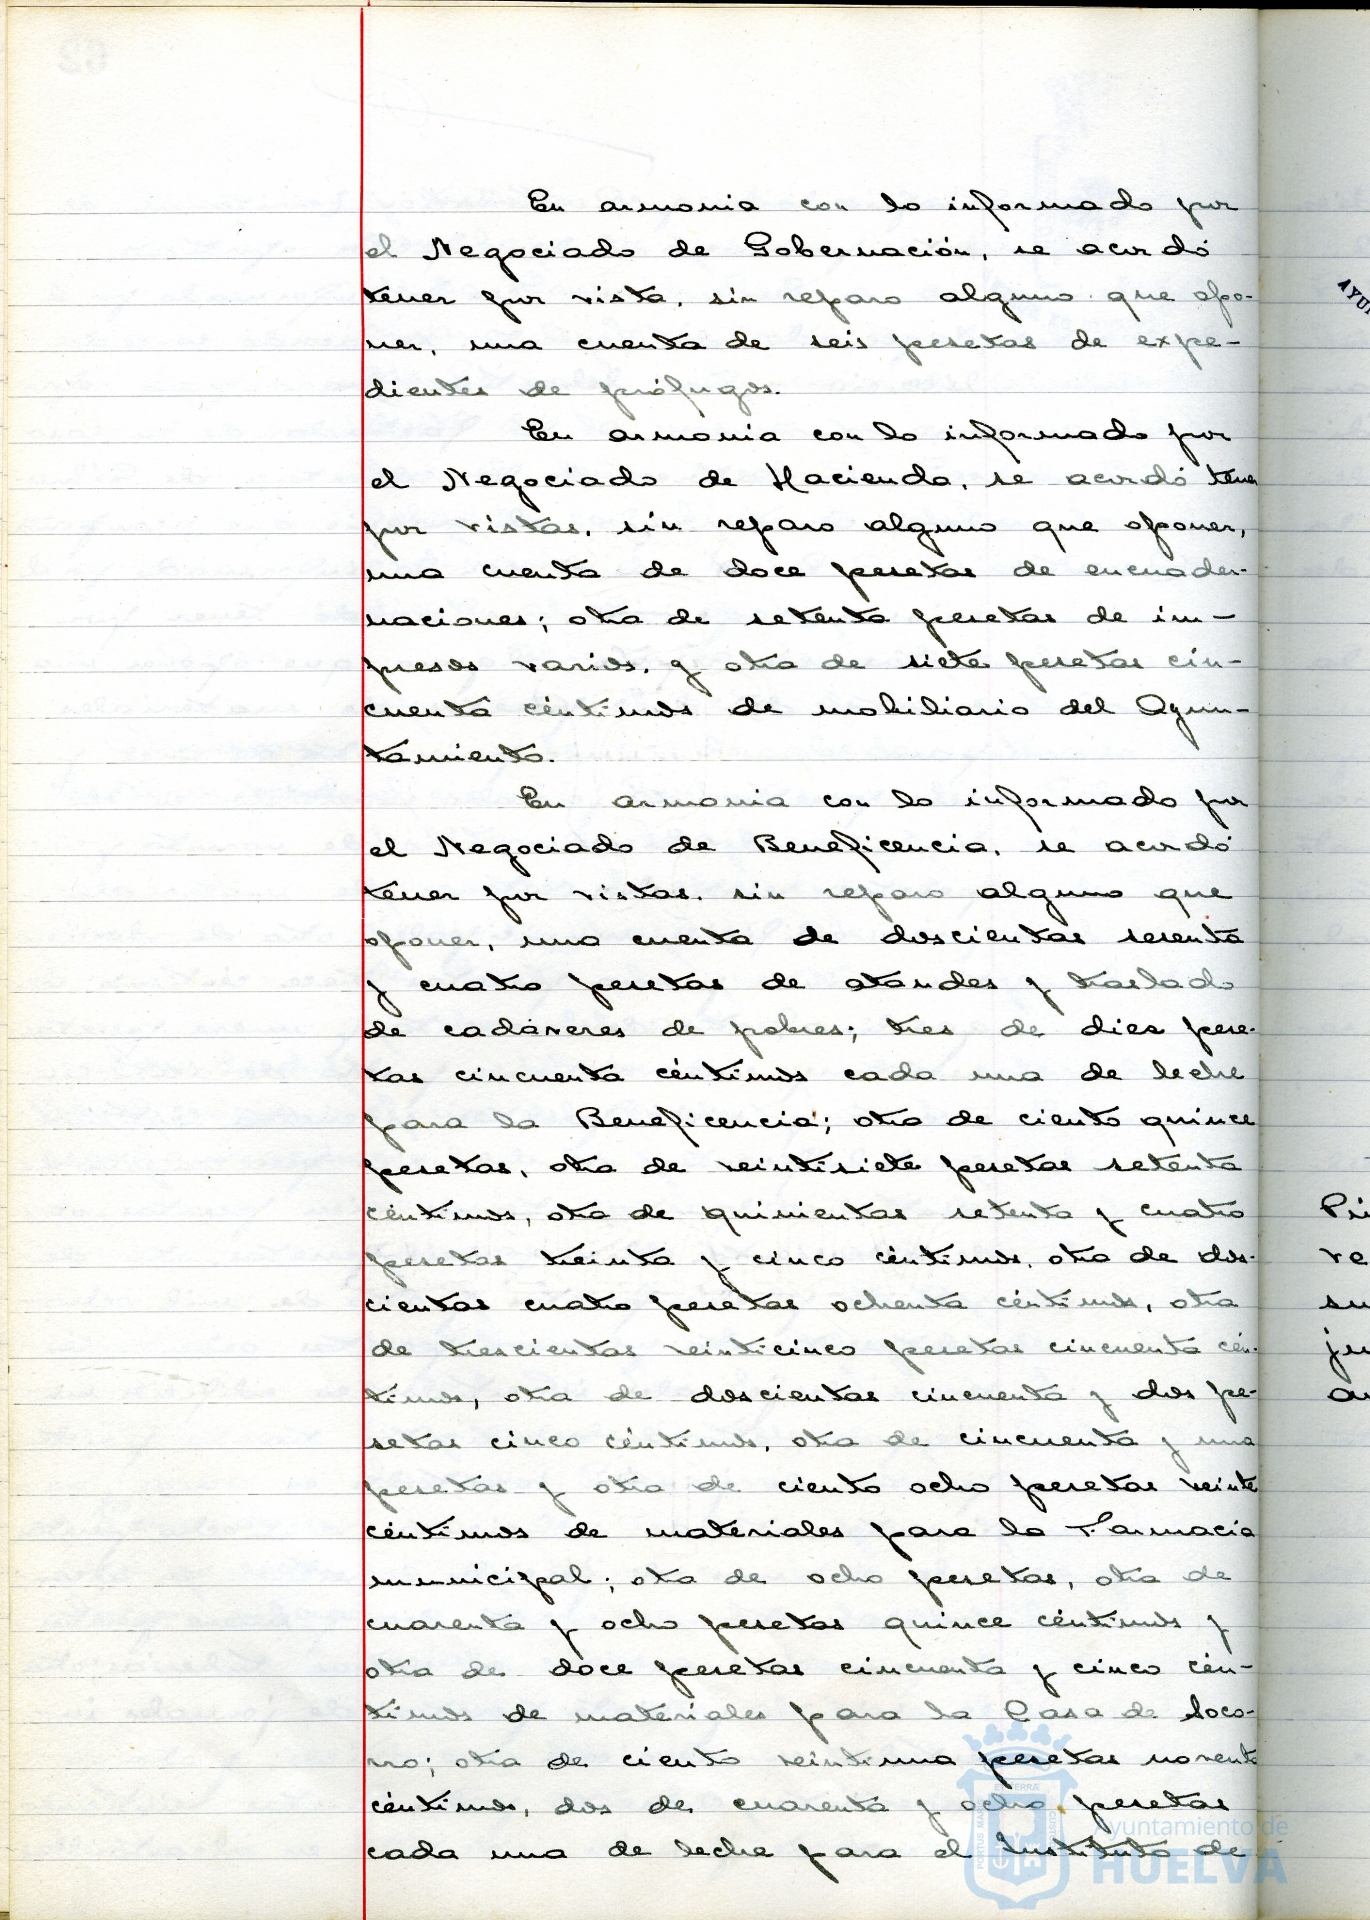 En armonia con lo informado por
el Negociado de Gobernación, se acordó
tener por vista, sin reparo alguno que opo-
ner, una cuenta de seis pesetas de expe-
dientes de prófugos.
En armonia con lo informado por
el Negociado de Hacienda, se acordó tener
por vistas, sin reparo alguno que oponer,
una cuenta de doce pesetas de encuader-
naciones; otra de setenta pesetas de im-
presos varios, y otra de siete pesetas cin-
cuenta céntimos de mobiliario del Ayun-
tamiento.
En armonia con lo informado por
el Negociado de Beneficencia, se acordó
tener por vistas, sin reparo alguno que
oponer, una cuenta de doscientas sesenta
y cuatro pesetas de ataudes y traslado
de cadáveres de pobres; tres de diez pese-
tas cincuenta céntimos cada una de leche
para la Beneficencia; otra de ciento quince
pesetas, otra de veintisiete pesetas setenta
céntimos, otra de quinientas setenta y cuatro
pesetas treinta y cinco céntimos, otra de dos-
cientas cuatro pesetas ochenta céntimos, otra
de trescientas veinticinco pesetas cincuenta cén-
timos, otra de doscientas cincuenta y dos pe-
setas cinco céntimos, otra de cincuenta y una
pesetas y otra de ciento ocho pesetas veinte
céntimos de materiales para la Farmacia
municipal; otra de ocho pesetas, otra de
cuarenta y ocho pesetas quince céntimos y
otra de doce pesetas cincuenta y cinco cén-
timos de materiales para la Casa de Soco-
rro; otra de ciento veintiuna pesetas noventa
céntimos, dos de cuarenta y ocho pesetas
cada una de leche para el Instituto de
Ayuntamiento de
HUELVA